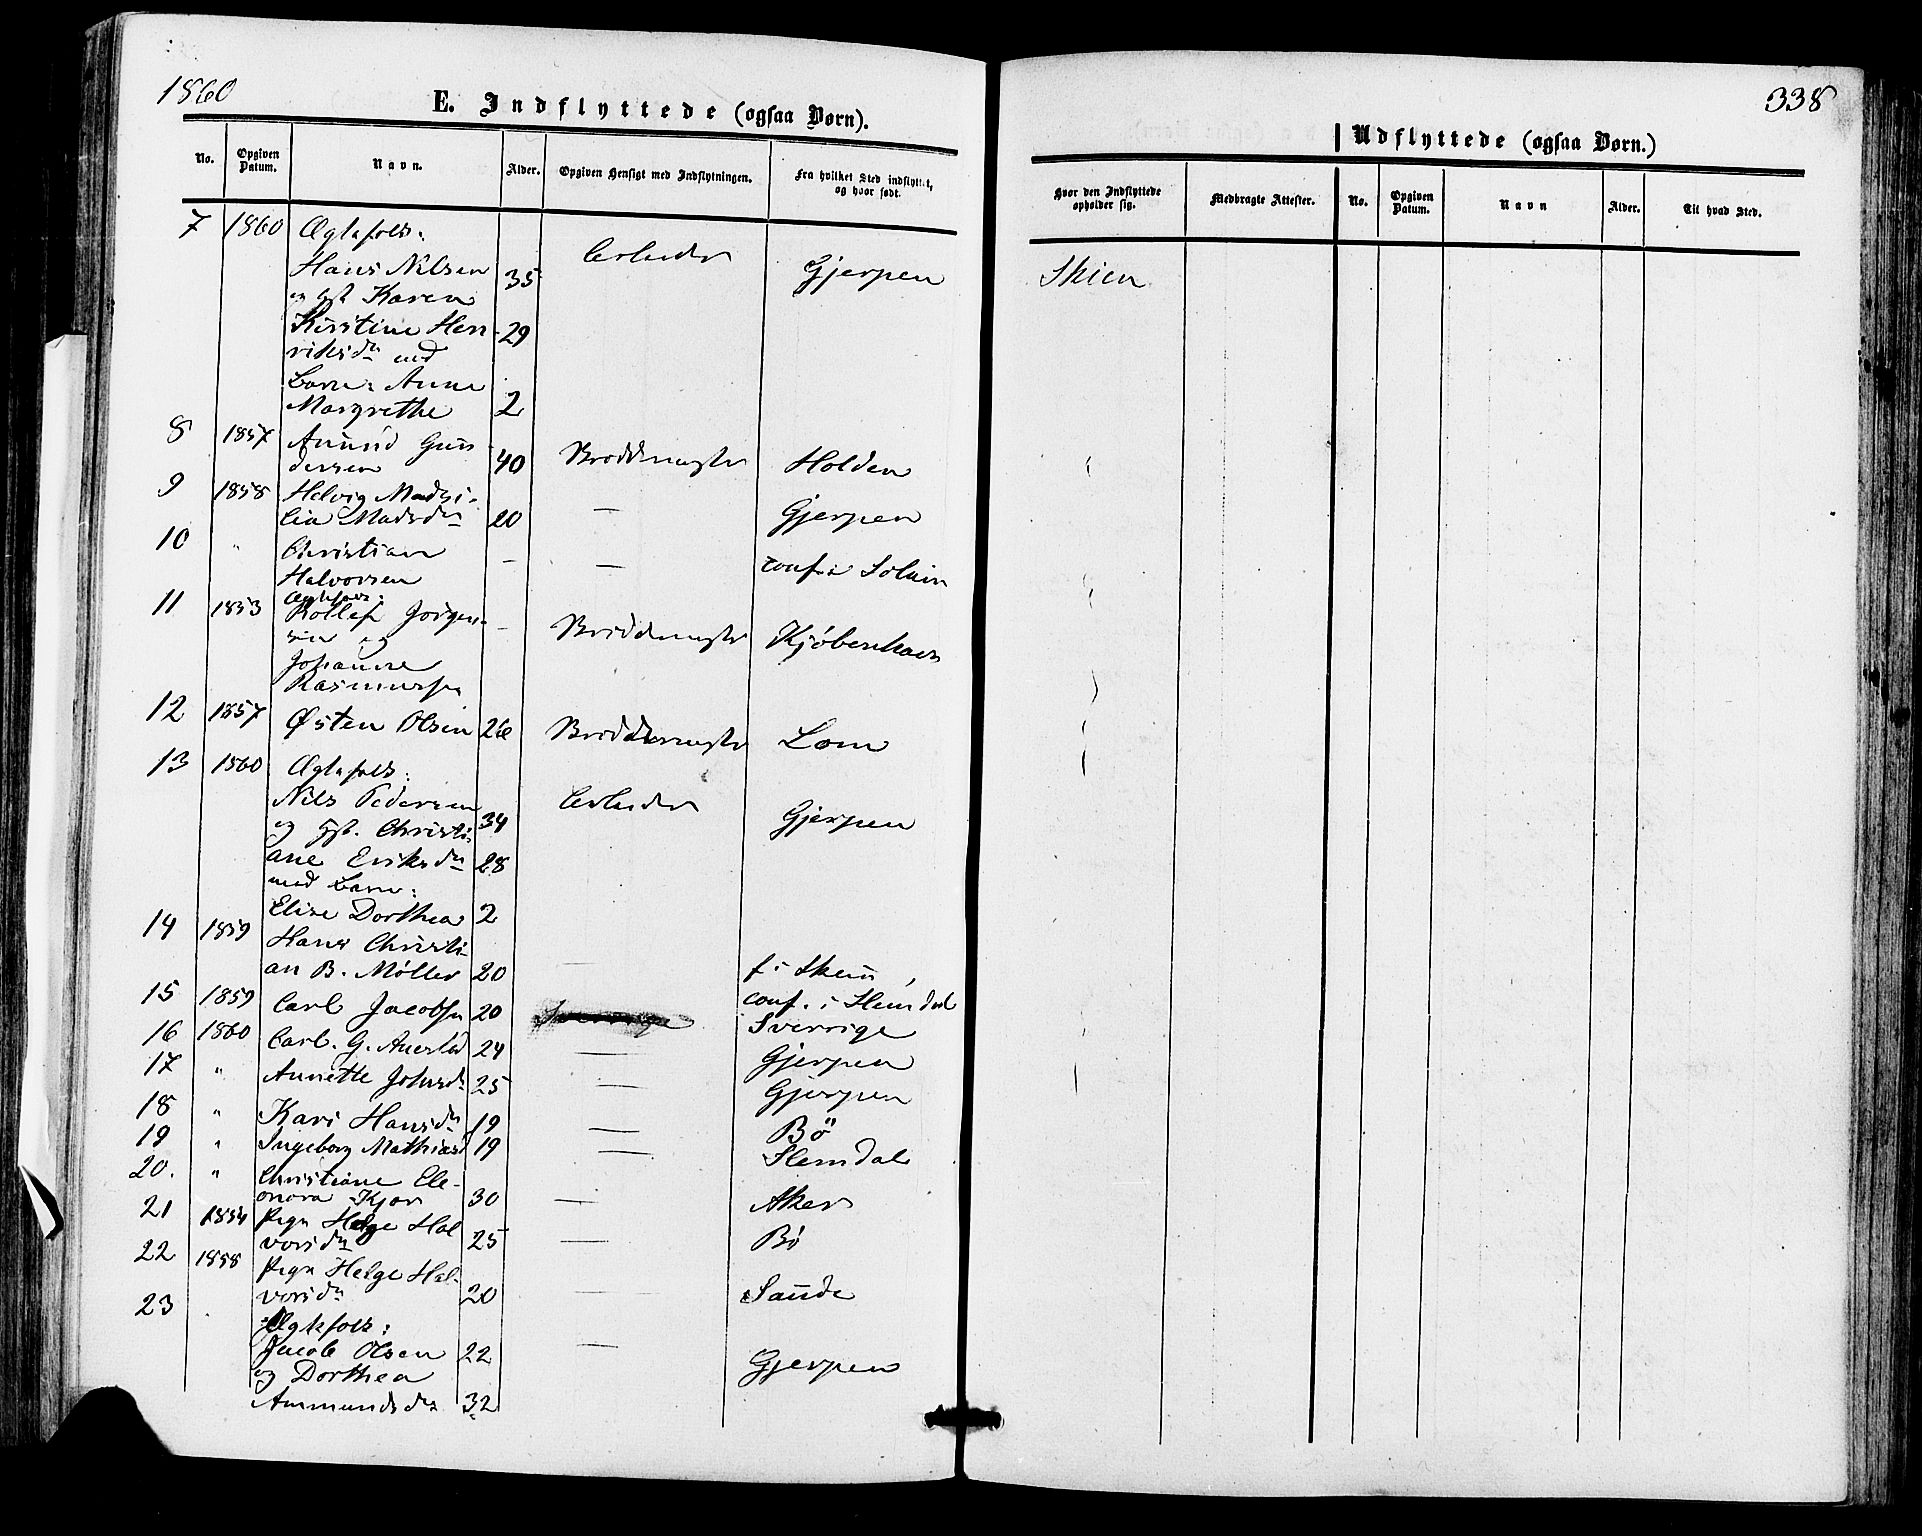 1860
E. Indflyttede (ogsaa Børn).
No.
Opgiven Datum.
Navn.
Alder.
Opgiven Hensigt med Indflytningen.
Fra hvilket Sted indflyttet, og hvor født.
7 1860 Ægtefolk:
Hans Nilsen 35 Arbeider Gjerpen
og Karen
Kirstine Hen
riksdr med 29
Barn: Anne
Margrethe 2
8 1857 Amund Gun
dersen 40 Holden
9 1858 Helvig
Madsdr 20 — Gjerpen
10 " Christian — — conf. i
Halvorsen
11 1853 Ægtefolk:
Rollef Jørgen- — Kjøbenhavn
sen og
Johanne
Rasmussen
12 1857 Østen Olsen 26 Lom
13 1860 Ægtefolk:
Nils Pedersen 34 Arbeider Gjerpen
og Christi
ane Eriksdr 28
med Barn:
Elise Dorthea 2
14 1859 Hans Christi
an B. Møller 20 — f. i Skien
15 1859 Carl Jacobsen 20 Sverrige conf. i Slemdal
16 1860 Carl. G. 24 — Sverrige
17 " Annette Johnsdr 25 — Gjerpen
Gjerpen
18 " Kari Hansdr 19 — Bö
19 " Ingeborg Mathiasd 19 — Slemdal
20. " Christiane Ele-
onora Kjær 30 — Aker
21 1854 Pign Helge Hal
vorsdr 25 — Bö
22 1858 Pign Helge Hal-
vorsdr 20 — Saude
23 Ægtefolk:
Jacob Olsen 22 — Gjerpen
og Dorthea
Ammundsdr 32
338
Udflyttede (ogsaa Børn.)
Hvor den Indflyttede opholder sig.
Medbragte Attester.
No.
Opgiven Datum.
Navn
Alder.
Til hvad Sted.
Skien